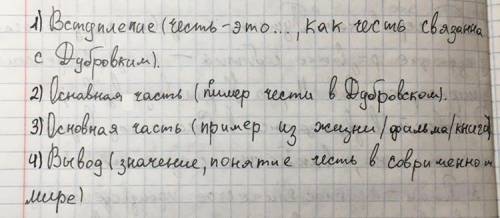 1) Вступление (честь - это..., как честь связанна
с Дубровким).
2) Оснавная часть (пимер чести в Дубровском).
3) Основная часть (пример из жизни/фильма/книга)
4) Вывод (значение, понятие честь в современном
мире)